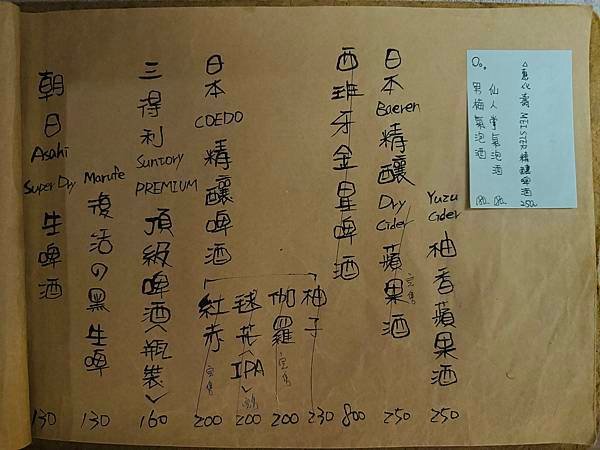 △惠比壽 MEISTER 精釀啤酒 250
仙人掌氣泡酒 180
男梅氣泡酒 180
Yuzu Cider 柚香蘋果酒 250
日本 Baeren 精釀 Dry Cider 蘋果酒 完售 250
西班牙金星啤酒 800
日本 COEDO 精釀啤酒
柚子 230
伽羅 完售 200
毬花(IPA) 完售 200
紅赤 完售 200
三得利 Suntory PREMIUM 頂級啤酒(瓶裝) 160
Marufe 復活の黑生啤 130
朝日 Asahi Super Dry 生啤酒 130